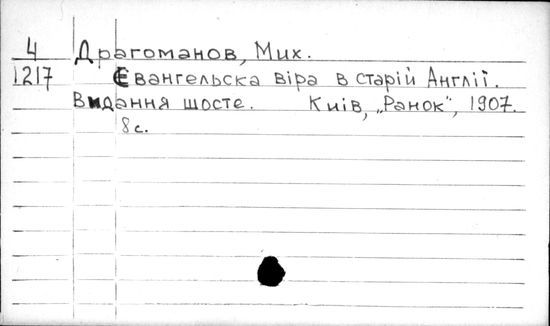 4 Драгоманов, Мих.
1217 Євангельска віра в старій Англії.
Видання шосте. Київ, „Ранок", 1907.
8 с.